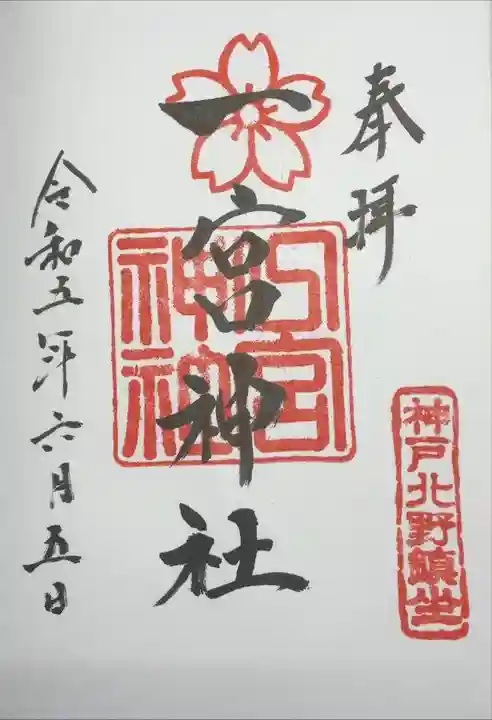 奉拝
神戸北野鎮坐
一宮神社
令和五年六月五日